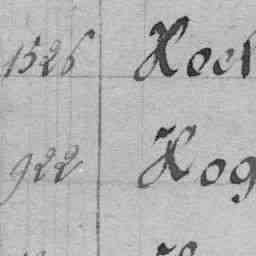 1526 Hoet
922 Hog